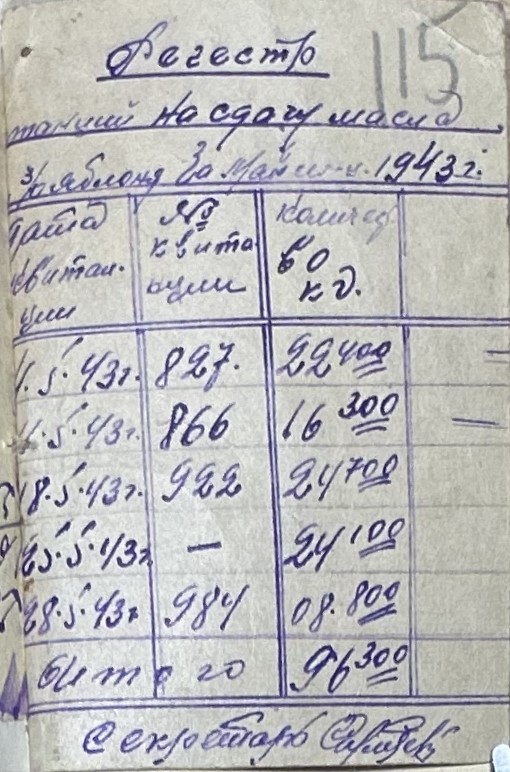 115
Регестр
танций на сдачу масла
за Май м-ц. 1943 г.
Дата квитан-ции
№ квита нции
Количес во кд.
1.5.43г. 827. 22400 =
1.5.43г. 866 16300 —
18.5.43г. 922 24700
25.5.43г — 24100
28.5.43г 984 08.800
Итого 96300
Секретарь